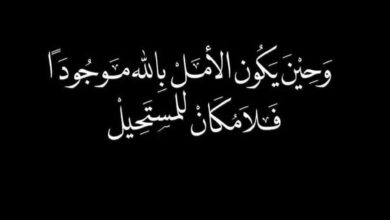 وَحِيْنَ يَكُون الأمَلْ بِالله مَوجُودَاً
فَلَا مَكَانْ للمُستَحِيلْ